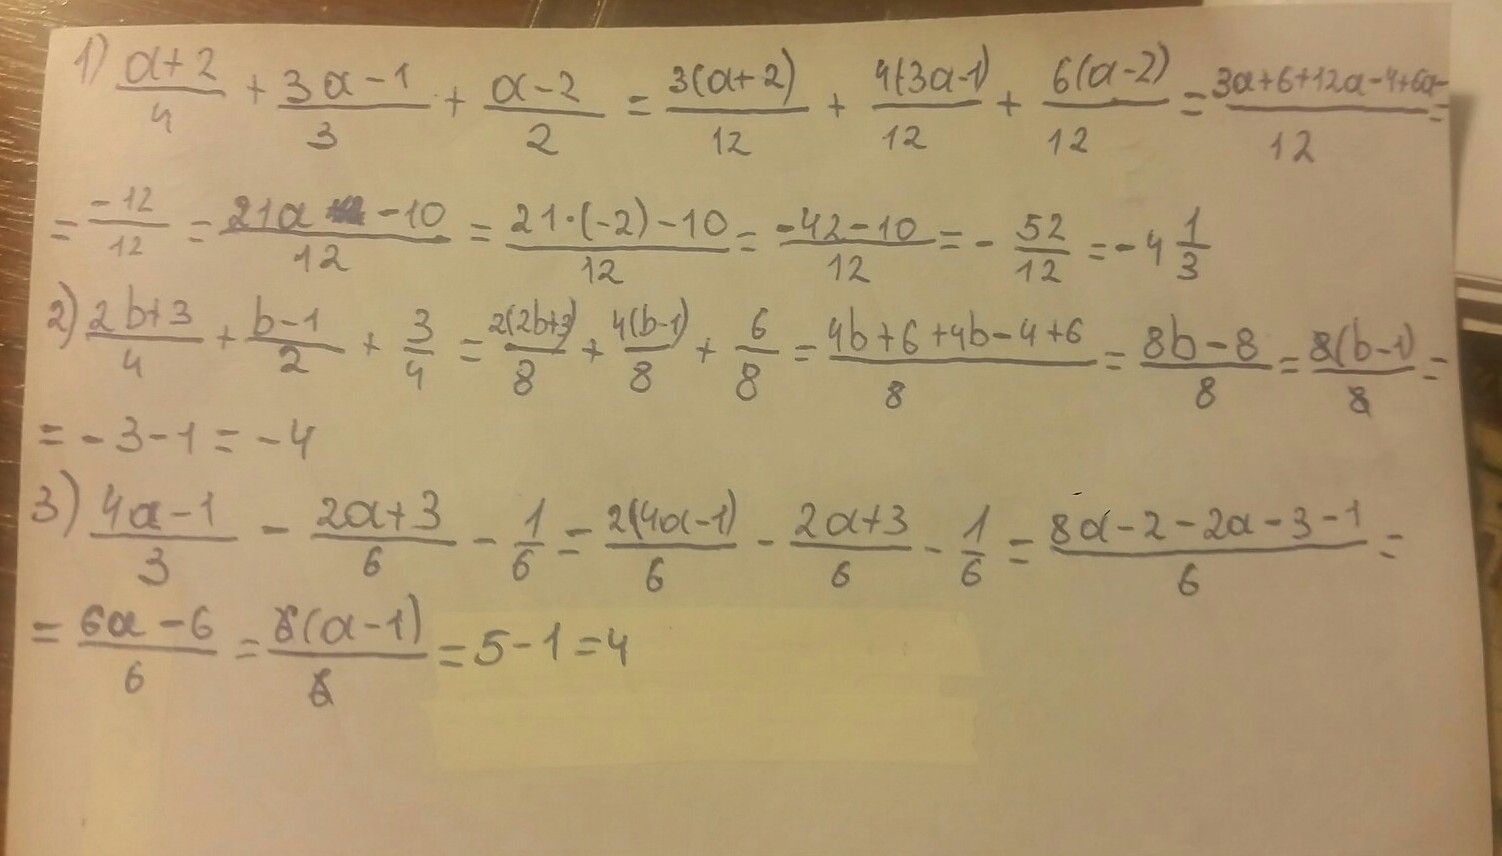 1) (a+2)/4 + (3a-1)/3 + (a-2)/2 = 3(a+2)/12 + 4(3a-1)/12 + 6(a-2)/12 = (3a+6+12a-4+6a-)/12 =
= (-12)/12 = (21a -10)/12 = (21·(-2)-10)/12 = (-42-10)/12 = - 52/12 = -4 1/3
2) (2b+3)/4 + (b-1)/2 + 3/4 = 2(2b+3)/8 + 4(b-1)/8 + 6/8 = (4b+6+4b-4+6)/8 = (8b-8)/8 = 8(b-1)/8 =
= -3-1 = -4
3) (4a-1)/3 - (2a+3)/6 - 1/6 = 2(4a-1)/6 - (2a+3)/6 - 1/6 = (8a-2-2a-3-1)/6 =
= (6a-6)/6 = 6(a-1)/6 = 5-1 = 4